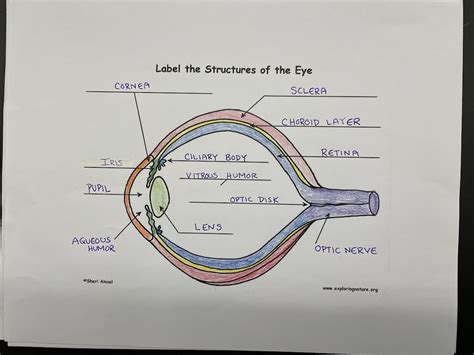 Label the Structures of the Eye
CORNEA
SCLERA
CHOROID LAYER
RETINA
IRIS
CILIARY BODY
VITROUS HUMOR
PUPIL
OPTIC DISK
LENS
AQUEOUS
HUMOR
OPTIC NERVE
©Sheri Amsel
www.exploringnature.org